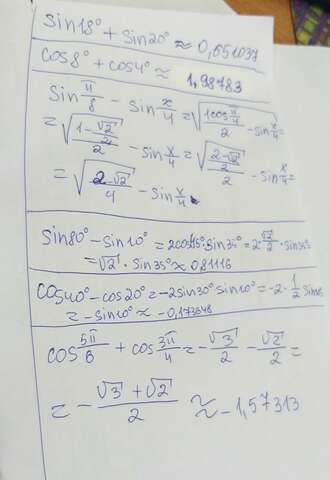 sin18° + sin20° ≈ 0,651037
cos8° + cos4° ≈ 1,98783
sin π/8 - sin x/4 = √(1cos π/4 / 2) - sin x/4 =
= √((1 - √2/2) / 2) - sin x/4 = √((2-√2)/2 / 2) - sin x/4 =
= √((2-√2)/4) - sin x/4
sin80° - sin10° = 2cos45° sin34° = 2·√2/2 · sin35°
= √2 · sin35° ≈ 0,81116
cos40° - cos20° = -2sin30° sin10° = -2·1/2 sin10
= -sin10° ≈ -0,173648
cos 5π/6 + cos 3π/4 = -√3/2 - √2/2 =
= - (√3 + √2)/2 ≈ -1,57313